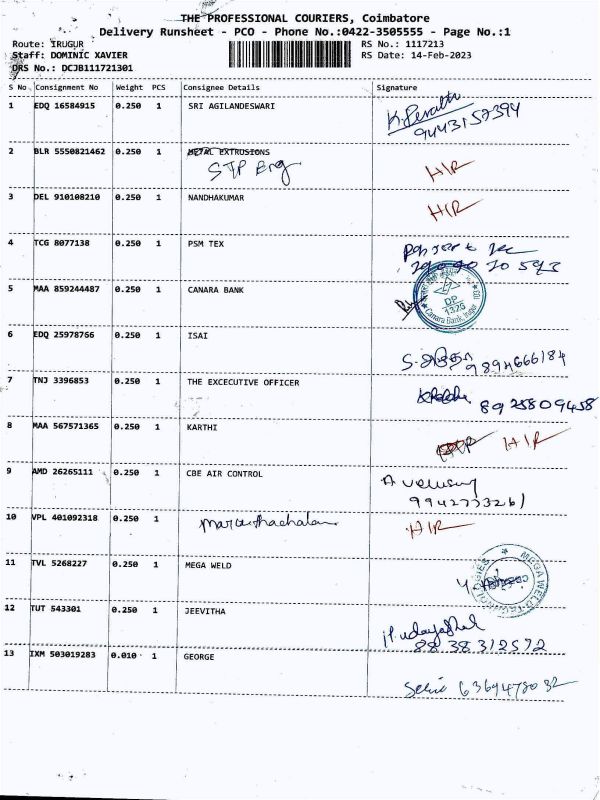 THE PROFESSIONAL COURIERS, Coimbatore
Delivery Runsheet - PCO - Phone No.:0422-3505555 - Page No.:1
Route: IRUGUR RS No.: 1117213
Staff: DOMINIC XAVIER RS Date: 14-Feb-2023
DRS No.: DCJB111721301
S No Consignment No Weight PCS Consignee Details Signature
1 EDQ 16584915 0.250 1 SRI AGILANDESWARI
9443152394
2 BLR 5550821462 0.250 1 METAL EXTRUSIONS
STP Eng H/R
3 DEL 910108210 0.250 1 NANDHAKUMAR H/R
4 TCG 8077138 0.250 1 PSM TEX
5 MAA 859244487 0.250 1 CANARA BANK
DP
1325
Canara Bank, Irugur
6 EDQ 25978766 0.250 1 ISAI
9894666184
7 TNJ 3396853 0.250 1 THE EXCECUTIVE OFFICER
8925809458
8 MAA 567571365 0.250 1 KARTHI H/R
9 AMD 26265111 0.250 1 CBE AIR CONTROL
9942773261
10 VPL 401092318 0.250 1 H/R
11 TVL 5268227 0.250 1 MEGA WELD
MEGA WELD
12 TUT 543301 0.250 1 JEEVITHA
8838312572
13 IXM 503019283 0.010 1 GEORGE
6369478032